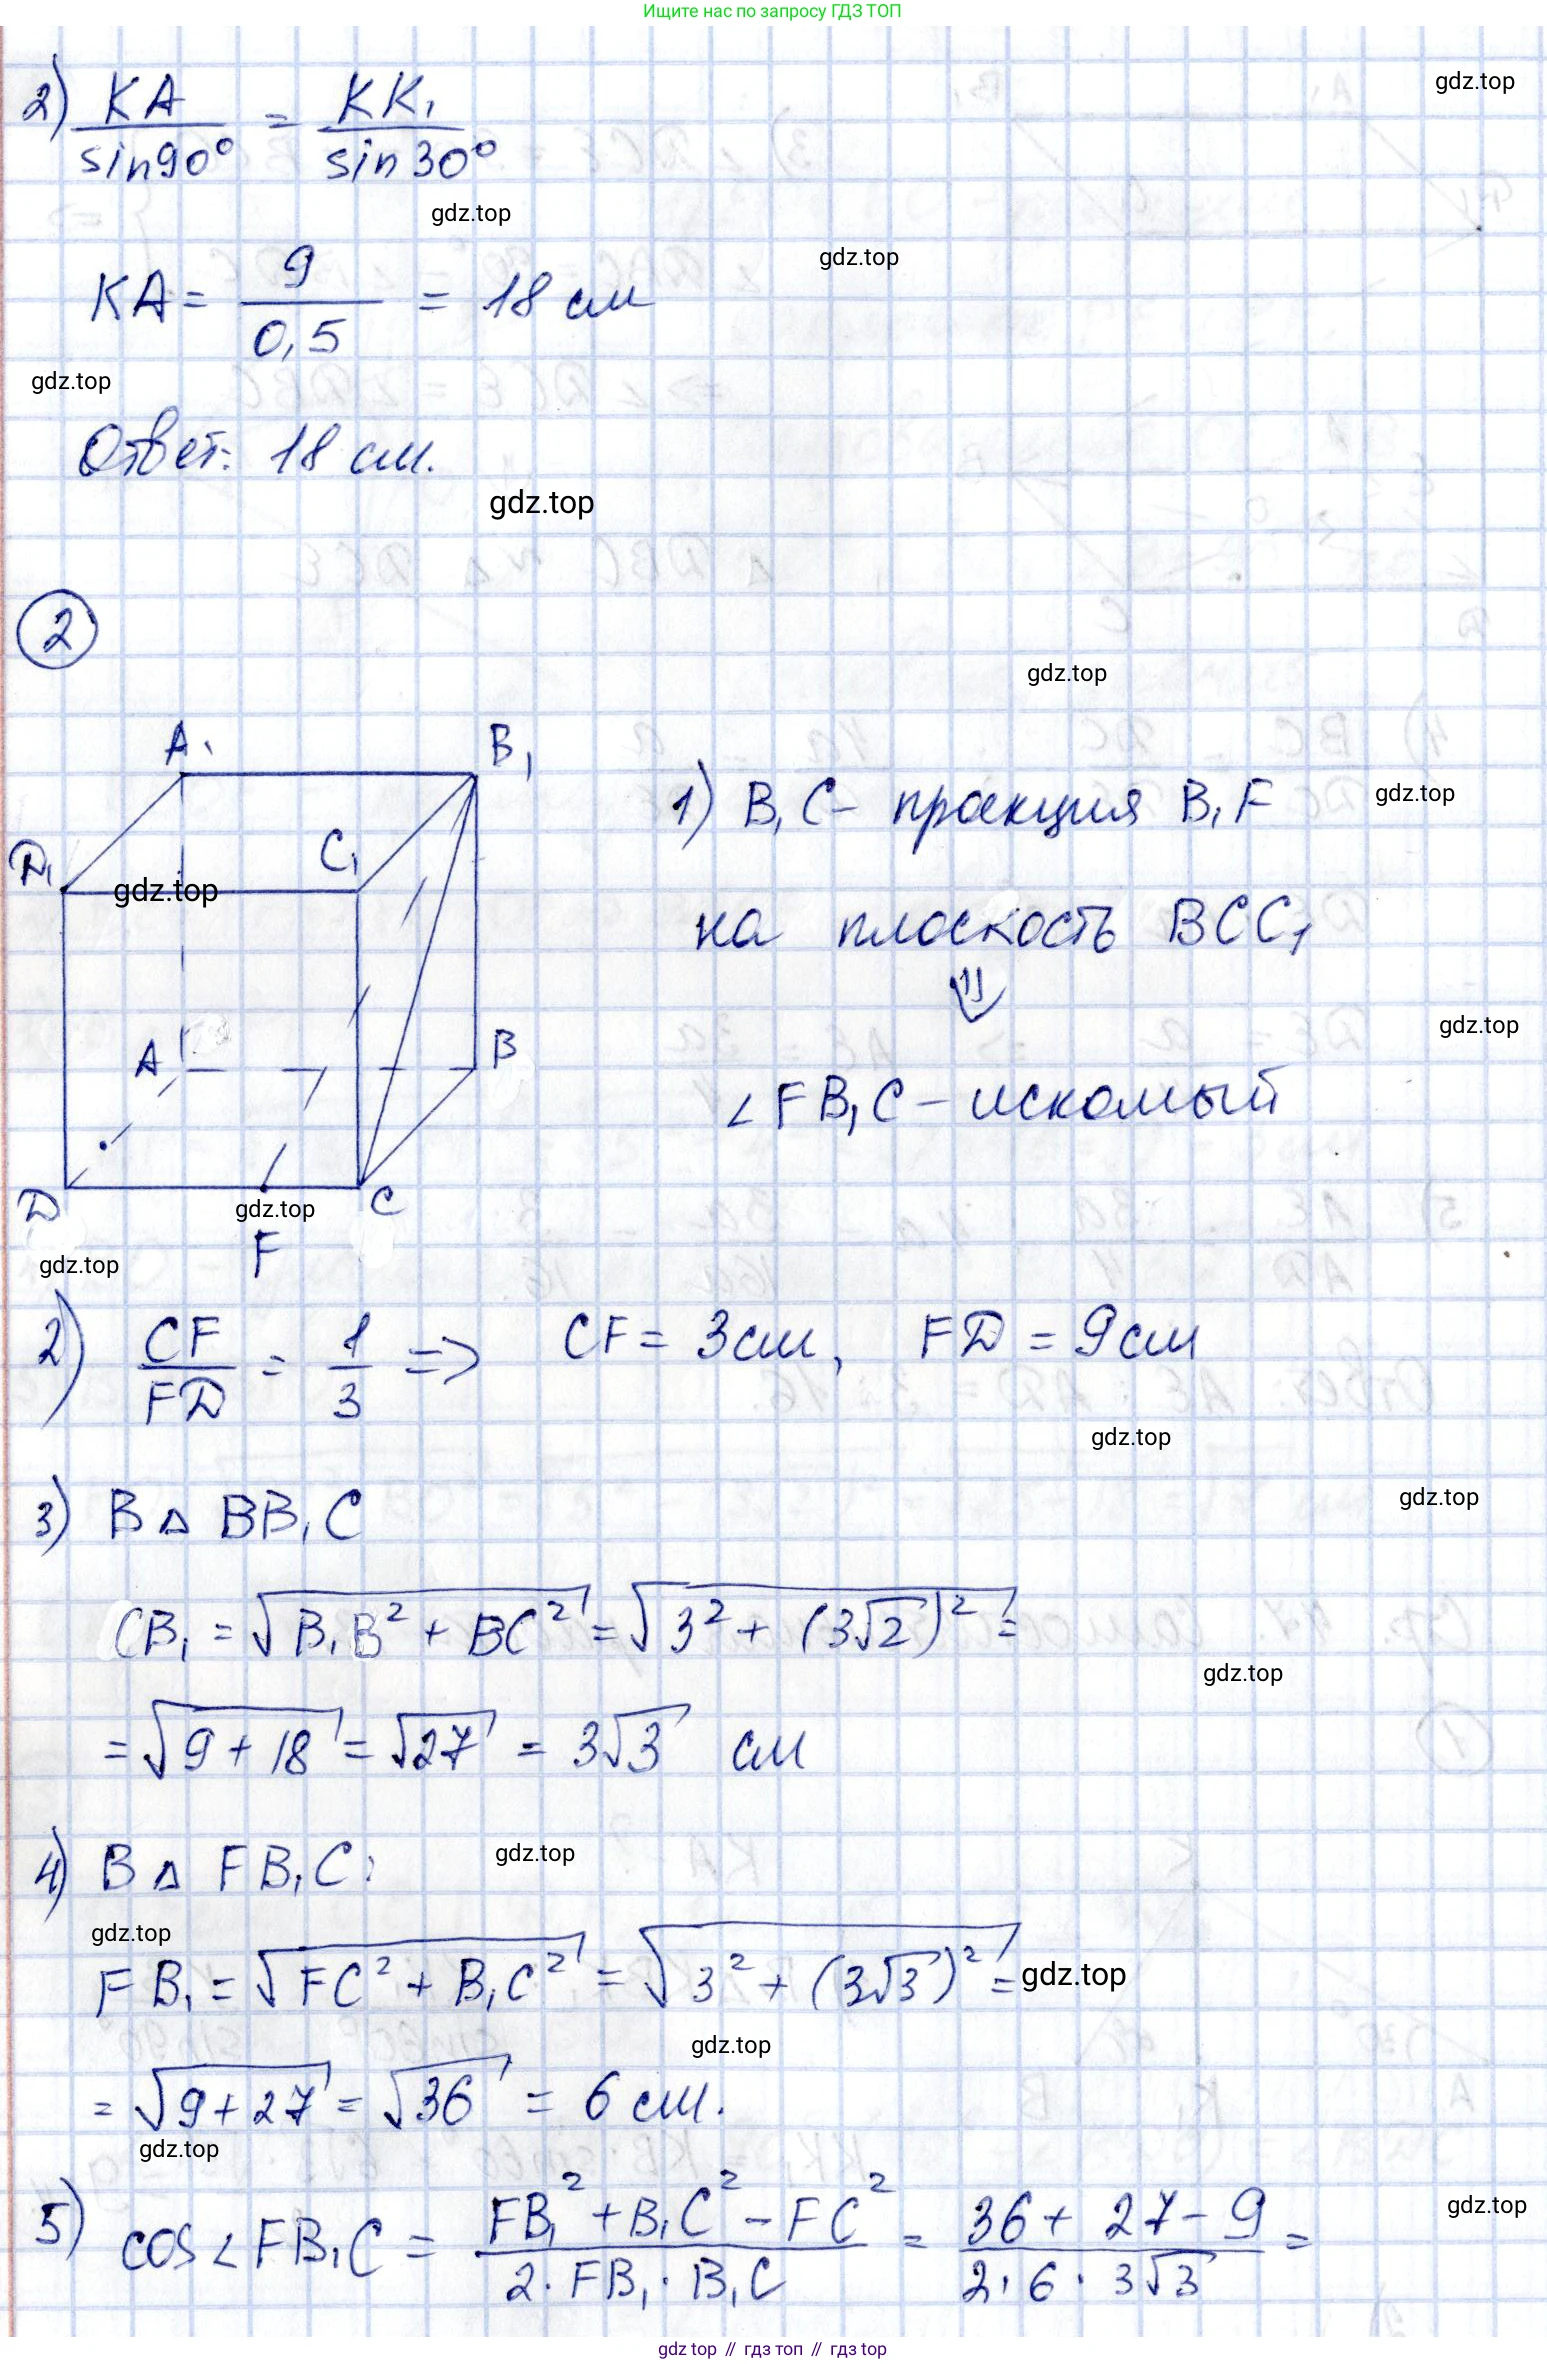 Ищите нас по запросу ГДЗ ТОП
gdz.top
2) KA / sin90° = KK₁ / sin30°
gdz.top
gdz.top
KA = 9 / 0,5 = 18 см
gdz.top
Ответ: 18 см.
gdz.top
2
gdz.top
A₁ B₁
1) B₁C - проекция B₁F
gdz.top
D₁ C₁
gdz.top
на плоскость BCC₁
⇓
A B
gdz.top
∠FB₁C - искомый
D C
gdz.top
F
gdz.top
2) CF / FD = 1 / 3 ⇒ CF = 3 см, FD = 9 см
gdz.top
gdz.top
3) В △ BB₁C
CB₁ = √(B₁B² + BC²) = √(3² + (3√2)²) =
gdz.top
= √(9 + 18) = √27 = 3√3 см
4) В △ FB₁C:
gdz.top
gdz.top
FB₁ = √(FC² + B₁C²) = √(3² + (3√3)²) =
gdz.top
gdz.top
= √(9 + 27) = √36 = 6 см.
gdz.top
5) cos∠FB₁C = (FB₁² + B₁C² - FC²) / (2 · FB₁ · B₁C) = (36 + 27 - 9) / (2 · 6 · 3√3) =
gdz.top
gdz.top // гдз топ // gdz.top